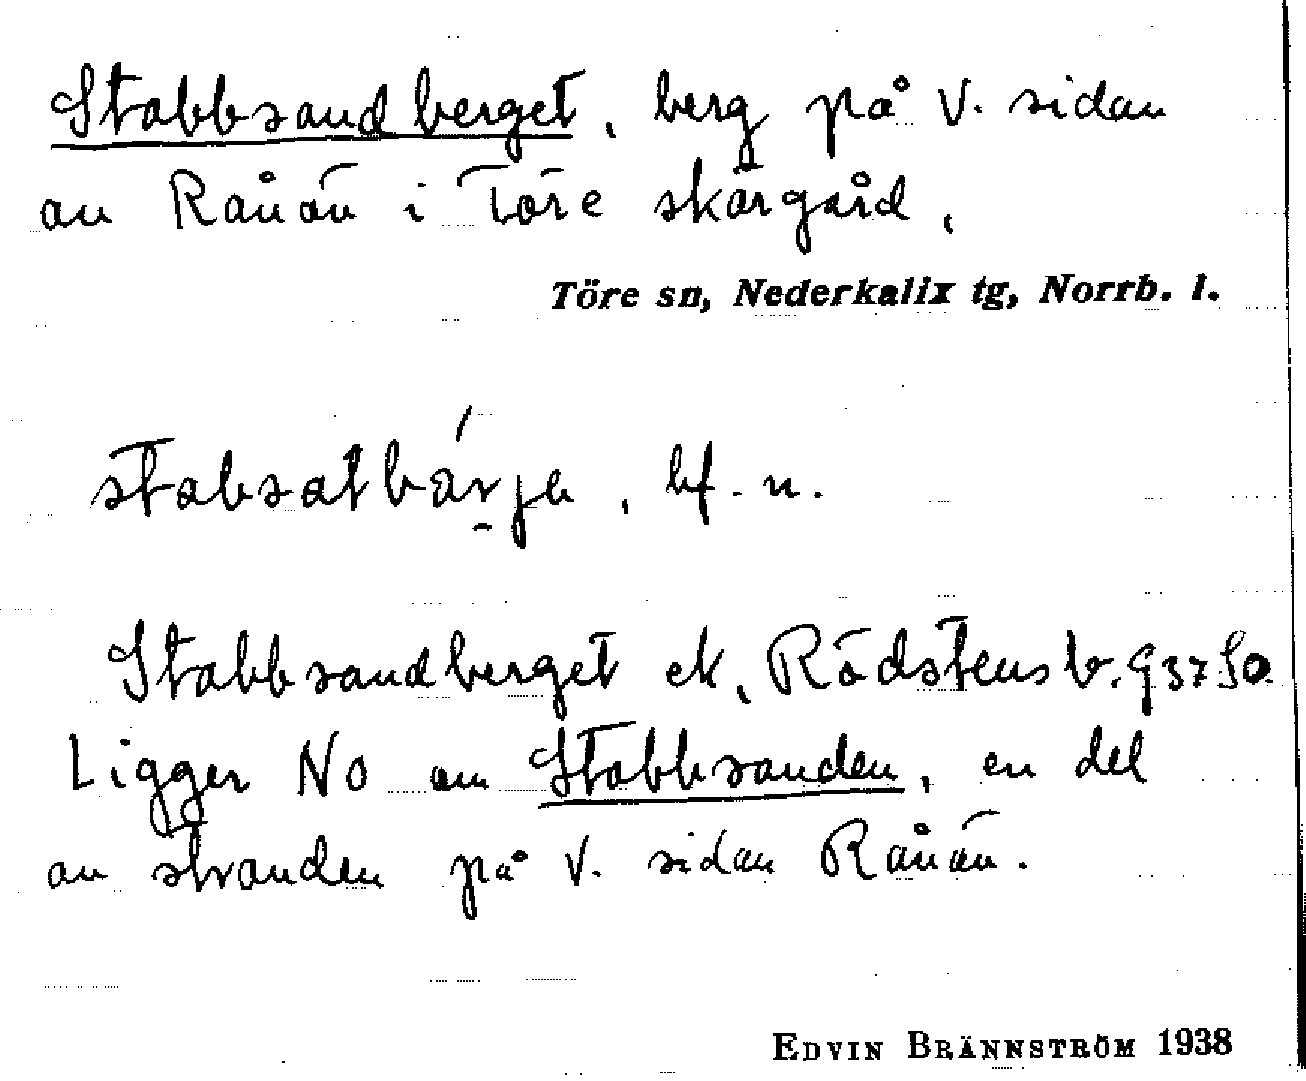 Stabbsandberget, berg på V. sidan
av Rånön i Töre skärgård.
Töre sn, Nederkalix tg, Norrb. l.
stabsatbärje, bf. n.
Stabbsandberget ek, Rödstens b. 937 SO
Ligger NO om Stabbsanden, en del
av stranden på V. sidan Rånön.
EDVIN BRÄNNSTRÖM 1938